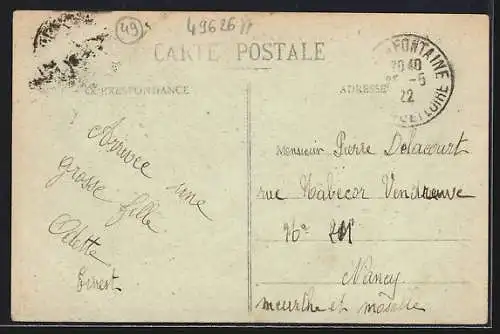 49
49626 11
CARTE POSTALE
CORRESPONDANCE
ADRESSE
FONTAINE
20 40
25 -5
22
ET LOIRE
Arrivée une
grosse fille
Odette
Ernest
Monsieur Pierre Delacourt
rue
No
Nancy
meurthe et moselle